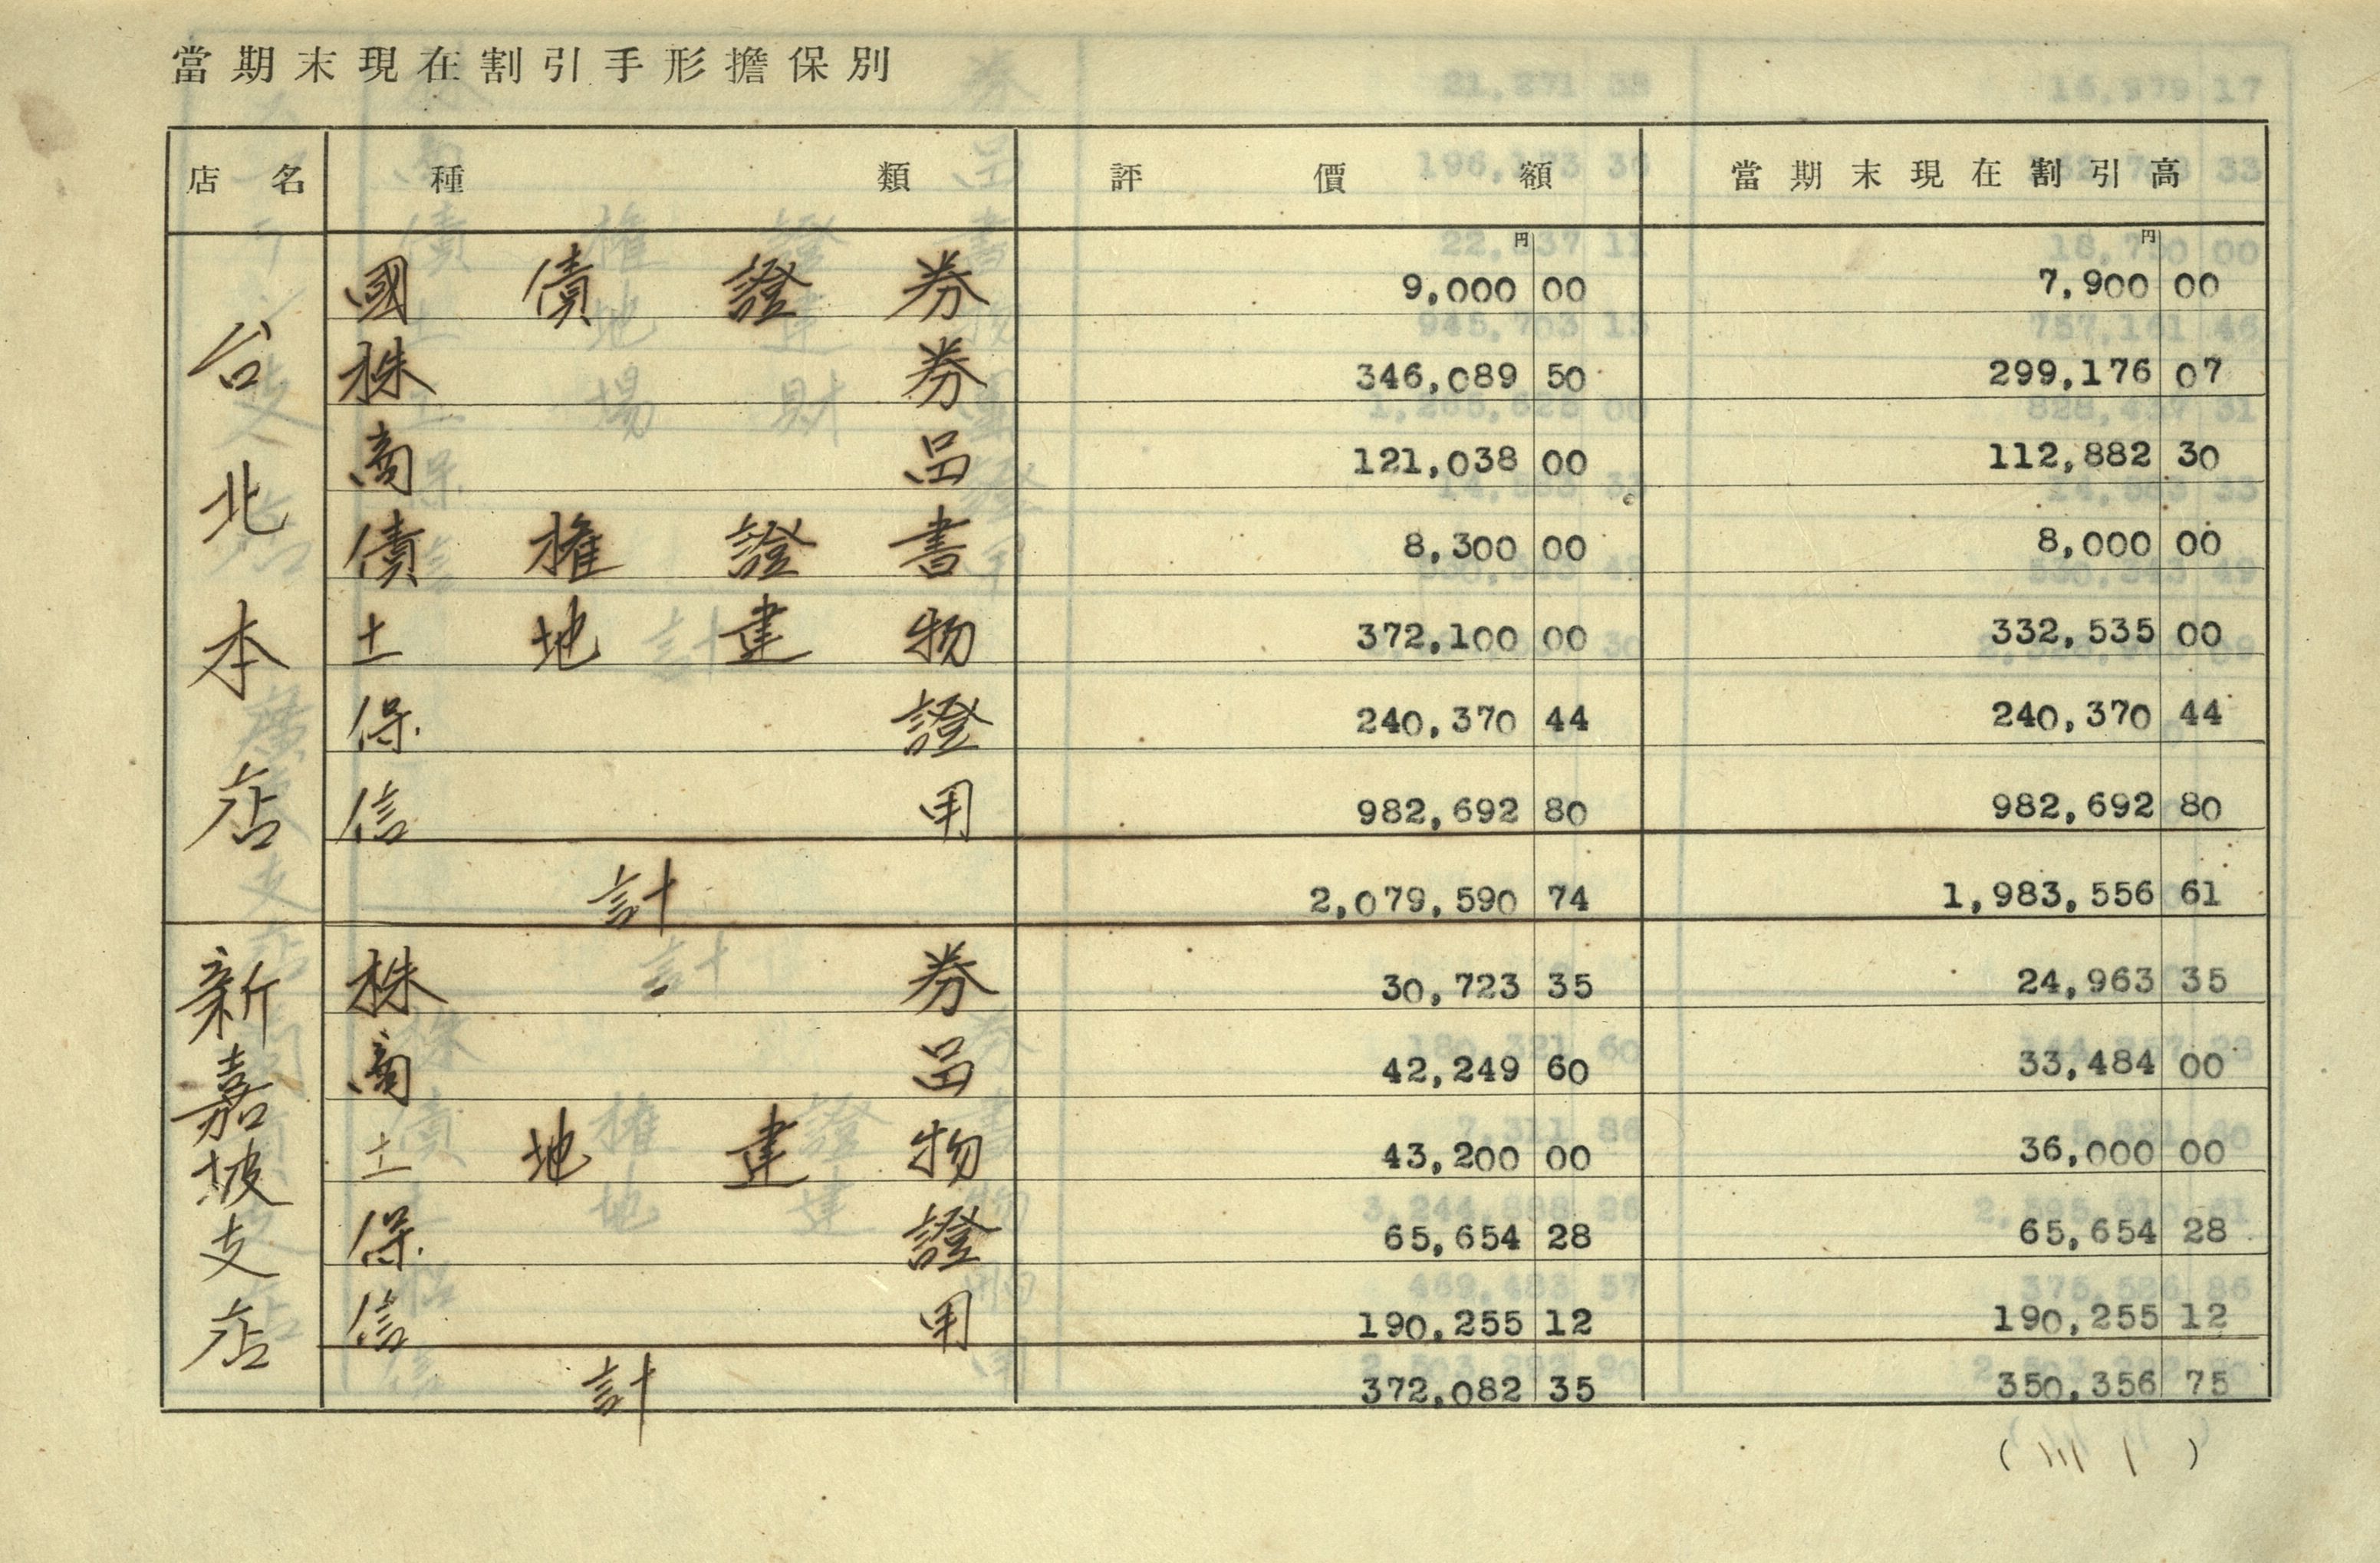 當期末現在割引手形擔保別
店名 種類 評價額 當期末現在割引高
円 円
台北本店
國債證券 9,000 00 7,900 00
株券 346,089 50 299,176 07
商品 121,038 00 112,882 30
債權證書 8,300 00 8,000 00
土地建物 372,100 00 332,535 00
保證 240,370 44 240,370 44
信用 982,692 80 982,692 80
計 2,079,590 74 1,983,556 61
新嘉坡支店
株券 30,723 35 24,963 35
商品 42,249 60 33,484 00
土地建物 43,200 00 36,000 00
保證 65,654 28 65,654 28
信用 190,255 12 190,255 12
計 372,082 35 350,356 75